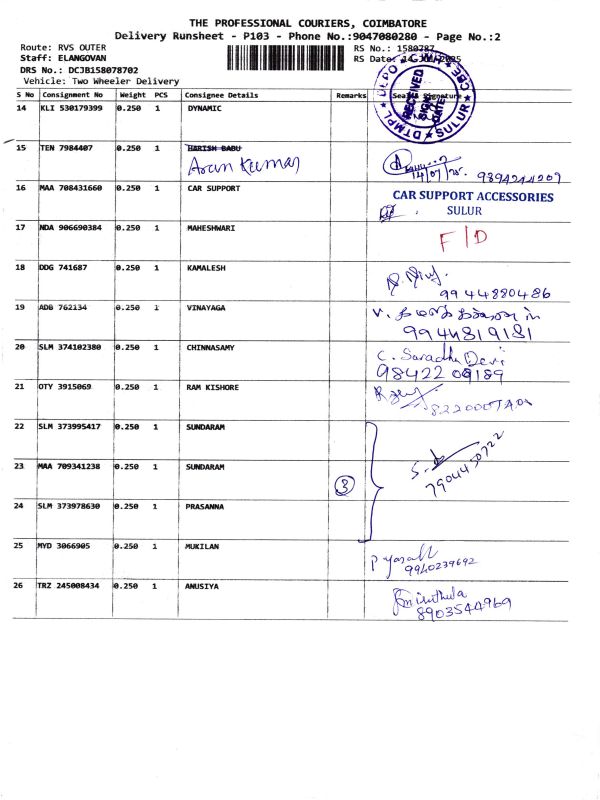 THE PROFESSIONAL COURIERS, COIMBATORE
Delivery Runsheet - P103 - Phone No.:9047080280 - Page No.:2
Route: RVS OUTER
RS No.: 1580787
Staff: ELANGOVAN
RS Date:
DRS No.: DCJB158078702
Vehicle: Two Wheeler Delivery
S No Consignment No Weight PCS Consignee Details Remarks Signature
DEPO CWH CBE
RECEIVED
SIGN
DATE
DTMPL SULUR
14 KLI 530179399 0.250 1 DYNAMIC
15 TEN 7984407 0.250 1 HARISH BABU
Arun Kumar
14/07/25. 9894244209
16 MAA 708431660 0.250 1 CAR SUPPORT
CAR SUPPORT ACCESSORIES
SULUR
17 NDA 906690384 0.250 1 MAHESHWARI
F/D
18 DDG 741687 0.250 1 KAMALESH
9944880486
19 ADB 762134 0.250 1 VINAYAGA
V.
9944819181
20 SLM 374102380 0.250 1 CHINNASAMY
C. Saradha Devi
98422 09189
21 OTY 3915069 0.250 1 RAM KISHORE
22 SLM 373995417 0.250 1 SUNDARAM
23 MAA 709341238 0.250 1 SUNDARAM
3
7904450722
24 SLM 373978630 0.250 1 PRASANNA
25 MYD 3066905 0.250 1 MUKILAN
9940239692
26 TRZ 245008434 0.250 1 ANUSIYA
8903544969